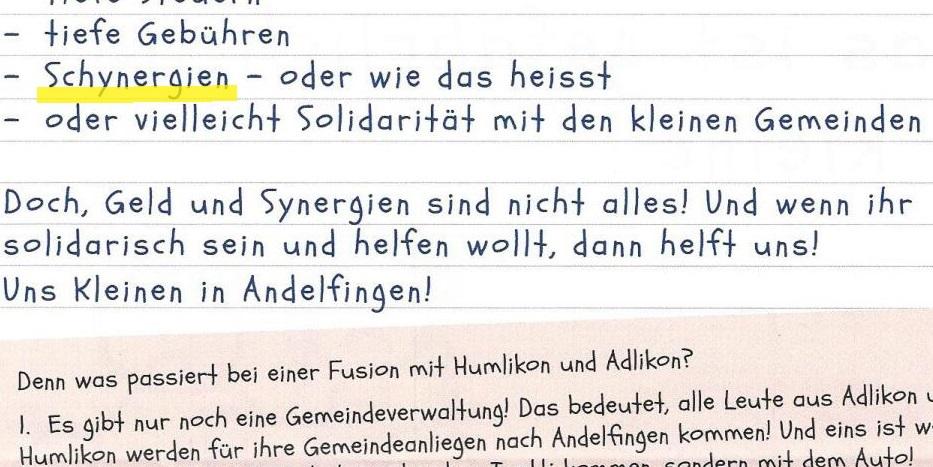 - tiefe Gebühren
- Schynergien - oder wie das heisst
- oder vielleicht Solidarität mit den kleinen Gemeinden
Doch, Geld und Synergien sind nicht alles! Und wenn ihr
solidarisch sein und helfen wollt, dann helft uns!
Uns Kleinen in Andelfingen!
Denn was passiert bei einer Fusion mit Humlikon und Adlikon?
1. Es gibt nur noch eine Gemeindeverwaltung! Das bedeutet, alle Leute aus Adlikon
Humlikon werden für ihre Gemeindeanliegen nach Andelfingen kommen! Und eins ist
sondern mit dem Auto!